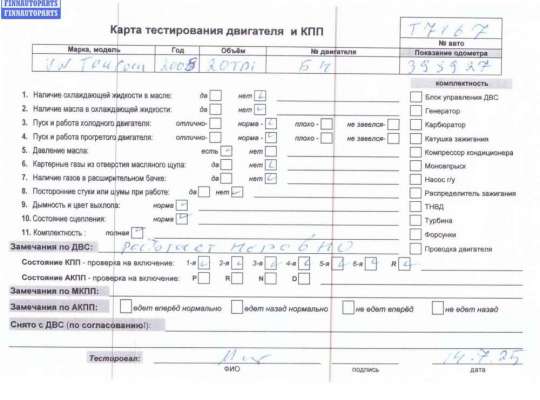 FINNAUTOPARTS
FINNAUTOPARTS
Карта тестирования двигателя и КПП
T7167
№ авто
Марка, модель Год Объём № двигателя Показание одометра
2005 2.0TDi БН 393927
комплектность
1. Наличие охлаждающей жидкости в масле: да нет
2. Наличие масла в охлаждающей жидкости: да нет
3. Пуск и работа холодного двигателя: отлично- норма - плохо - не завелся-
4. Пуск и работа прогретого двигателя: отлично- норма - плохо - не завелся-
5. Давление масла: есть нет
6. Картерные газы из отверстия масляного щупа: да нет
7. Наличие газов в расширительном бачке: да нет
8. Посторонние стуки или шумы при работе: да нет
9. Дымность и цвет выхлопа: норма
10. Состояние сцепления: норма
11. Комплектность : полная
Блок управления ДВС
Генератор
Карбюратор
Катушка зажигания
Компрессор кондиционера
Моновпрыск
Насос г/у
Распределитель зажигания
ТНВД
Турбина
Форсунки
Проводка двигателя
Замечания по ДВС: работает
Состояние КПП - проверка на включение: 1-я 2-я 3-я 4-я 5-я 6-я R
Состояние АКПП - проверка на включение: P R N D
Замечания по МКПП:
Замечания по АКПП: едет вперёд нормально едет назад нормально не едет вперёд не едет назад
Снято с ДВС (по согласованию!):
Тестировал: 14.7.25
ФИО подпись дата